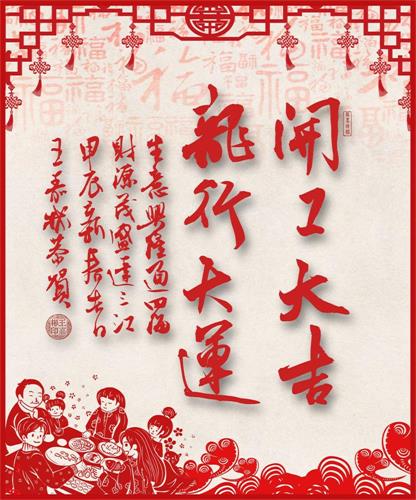 開工大吉
龍行大運
生意興隆通四海
財源茂盛達三江
甲辰新春吉日
王恭賀